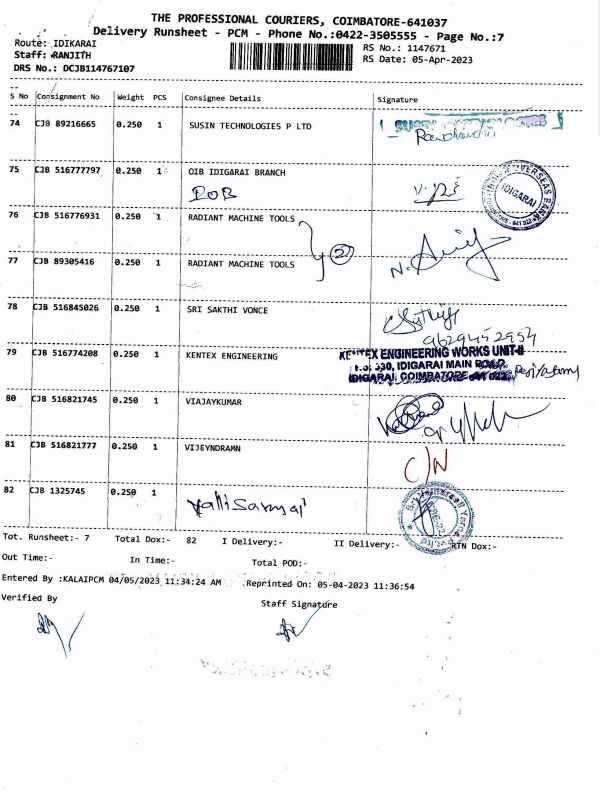 THE PROFESSIONAL COURIERS, COIMBATORE-641037
Delivery Runsheet - PCM - Phone No.:0422-3505555 - Page No.:7
Route: IDIKARAI
RS No.: 1147671
Staff: RANJITH
RS Date: 05-Apr-2023
DRS No.: DCJB114767107
S No Consignment No Weight PCS Consignee Details Signature
74 CJB 89216665 0.250 1 SUSIN TECHNOLOGIES P LTD
75 CJB 516777797 0.250 1 OIB IDIGARAI BRANCH
IOB
OVERSEAS BANK
IDIGARAI
76 CJB 516776931 0.250 1 RADIANT MACHINE TOOLS
2
77 CJB 89305416 0.250 1 RADIANT MACHINE TOOLS
78 CJB 516845026 0.250 1 SRI SAKTHI VONCE
9629452954
79 CJB 516774208 0.250 1 KENTEX ENGINEERING
KENTEX ENGINEERING WORKS UNIT-II
330, IDIGARAI MAIN ROAD
IDIGARAI, COIMBATORE - 641 022.
80 CJB 516821745 0.250 1 VIAJAYKUMAR
81 CJB 516821777 0.250 1 VIJEYNDRAMN
C/N
82 CJB 1325745 0.250 1
Tot. Runsheet:- 7 Total Dox:- 82 I Delivery:- II Delivery:- RTN Dox:-
Out Time:- In Time:- Total POD:-
Entered By :KALAIPCM 04/05/2023 11:34:24 AM Reprinted On: 05-04-2023 11:36:54
Verified By Staff Signature